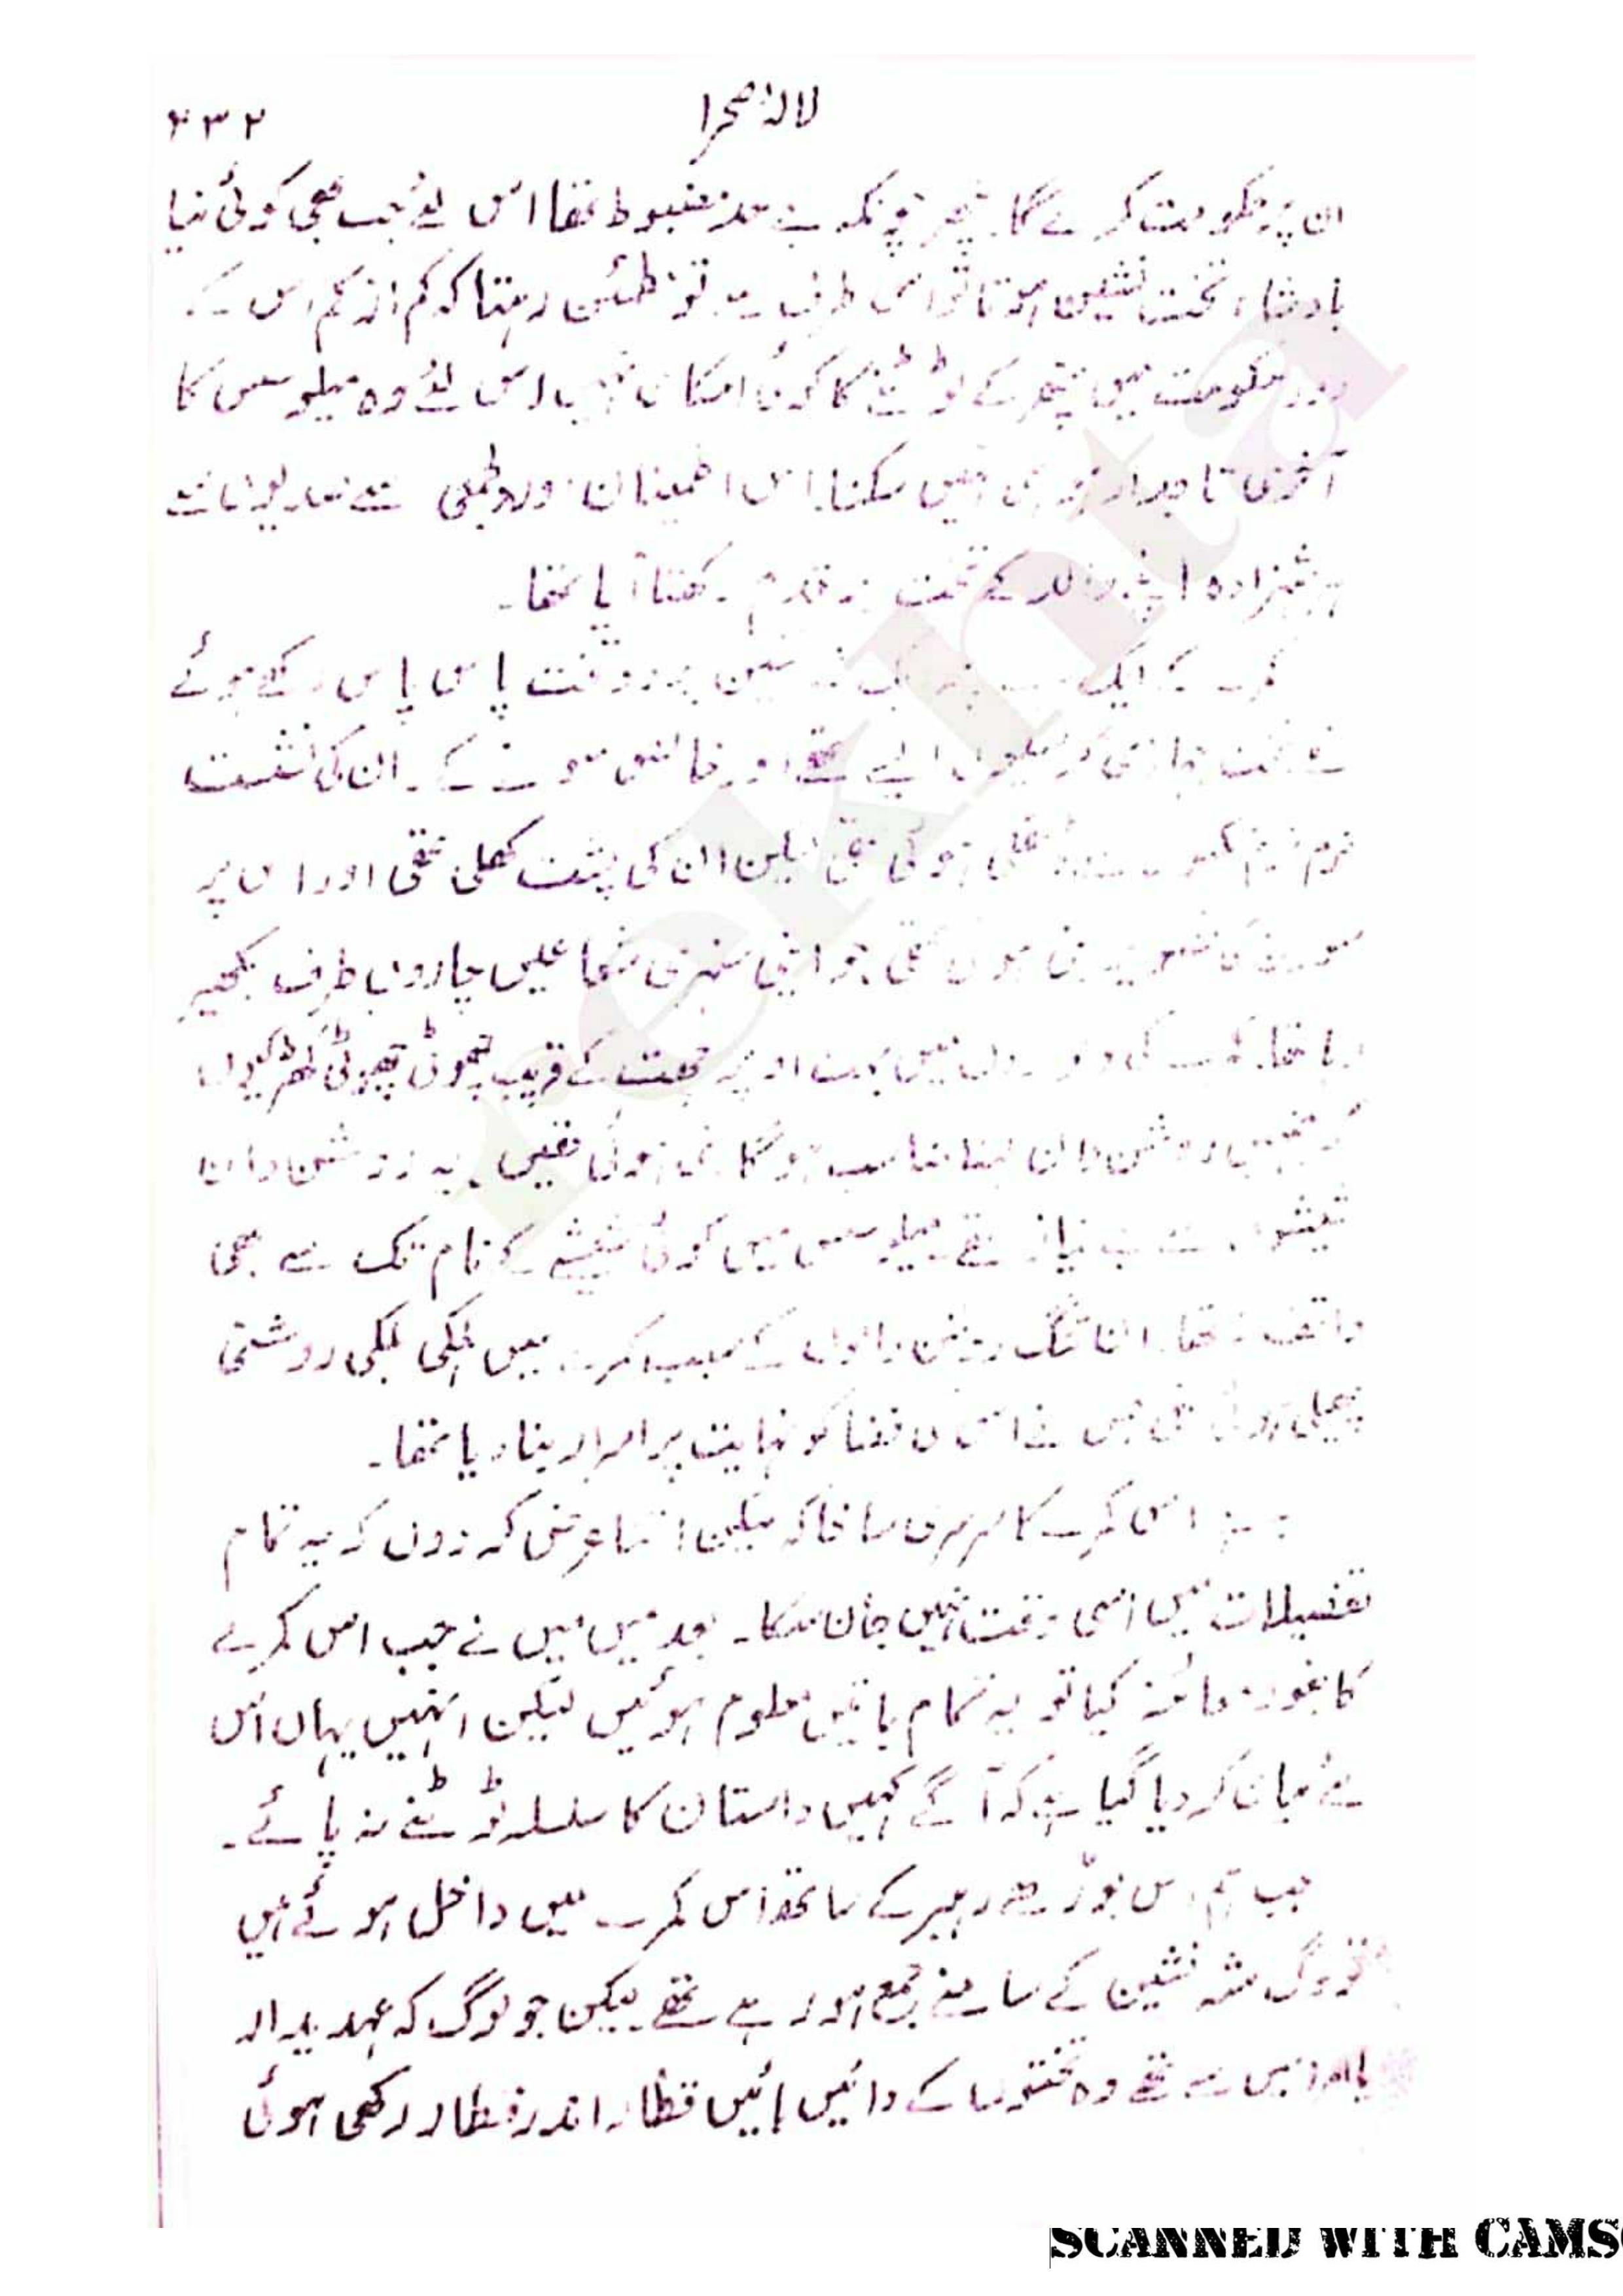 لالۂ صحرا
۲۳۲
ان پر حکومت کرے گا۔ پتھر چونکہ بے حد مضبوط تھا اس لئے جب بھی کوئی نیا
بادشاہ تخت نشین ہوتا تو اس طرف سے تو مطمئن رہتا کہ کم از کم اس کے
دور حکومت میں پتھر کے ٹوٹنے کا کوئی امکان نہیں اس لئے وہ میلوسس کا
آخری تاجدار ہو ہی نہیں سکتا۔ اس اطمینان اور دلجمعی سے
ہر شہزادہ اپنے والد کے تخت پر قدم رکھتا آیا تھا۔
کمرے کے ایک شہ نشین پر دو تخت پاس پاس رکھے ہوئے
تھے تخت ہماری کرسیوں ایسے تھے اور خالص سونے کے۔ ان کی نشست
نرم نرم ہوئی تھی لیکن ان کی پشت کھلی تھی اور اس پر
سورج کی تصویر بنی ہوئی تھی جو اپنی سنہری شعاعیں چاروں طرف بکھیر
رہا تھا۔ کمرے کی دیواروں میں بہت اوپر چھت کے قریب چھوٹی چھوٹی کھڑکیاں
کہ جنہیں روشن دان کہنا مناسب ہو گا بنی ہوئی تھیں۔ یہ روشن دان
شیشوں سے بے نیاز تھے میلوسس میں کوئی شیشے کے نام تک سے بھی
واقف نہ تھا۔ ان تنگ روشن دانوں کے سبب کمرے میں ہلکی ہلکی روشنی
پھیلی ہوئی تھی جس نے اس کی فضا کو نہایت پراسرار بنا دیا تھا۔
یہ ہے اس کمرے کا سرسری سا خاکہ لیکن اتنا عرض کر دوں کہ یہ تمام
تفصیلات میں اسی وقت نہیں جان سکا۔ بعد میں میں نے جب اس کمرے
کا بغور معائنہ کیا تو یہ تمام باتیں معلوم ہوئیں لیکن انہیں یہاں اس
لئے بیان کر دیا گیا ہے کہ آگے کہیں داستان کا سلسلہ ٹوٹنے نہ پائے۔
جب ہم اس بوڑھے رہبر کے ساتھ اس کمرے میں داخل ہوئے ہیں
تو لوگ شہ نشین کے سامنے جمع ہو رہے تھے لیکن جو لوگ کہ عہدیدار
یا امرا میں سے تھے وہ تختوں کے دائیں بائیں قطار اندر قطار رکھی ہوئی
rekhta
SCANNED WITH CAMS